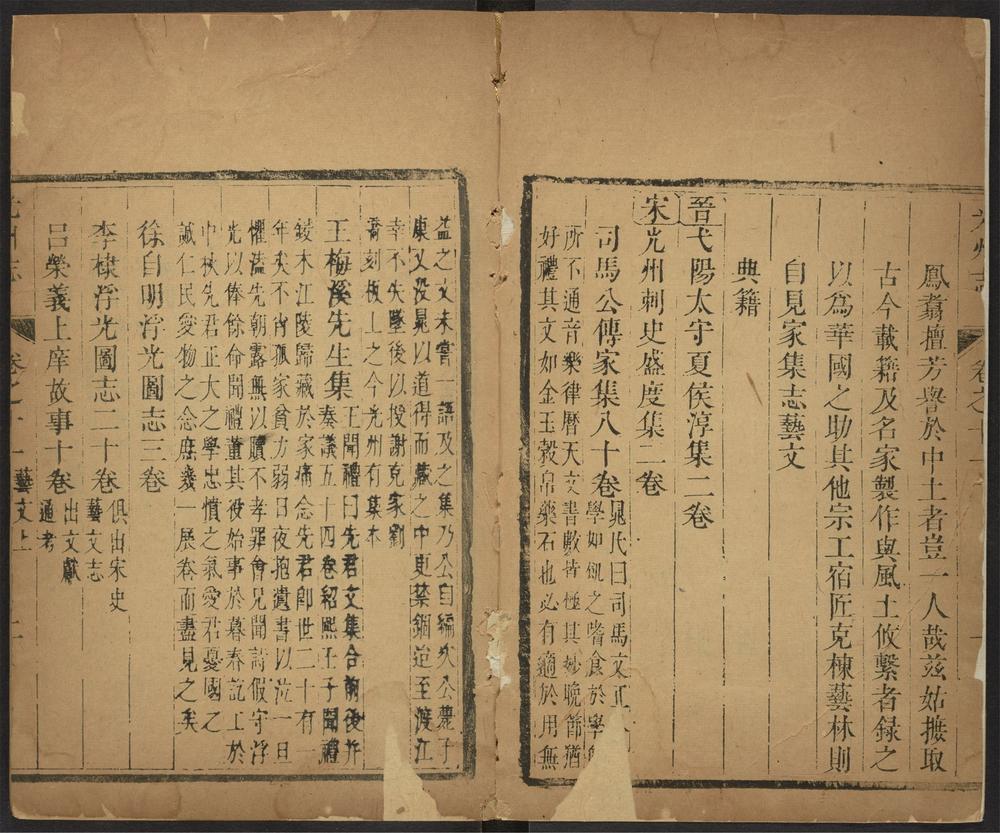 光州志
卷之十一
鳳翥擅芳譽於中土者豈一人哉茲姑摭取
古今載籍及名家製作與風土攸繫者録之
以爲華國之助其他宗工宿匠克棟藝林則
自見家集志藝文
典籍
晉弋陽太守夏侯淳集二卷
宋光州刺史盛度集二卷
司馬公傳家集八十卷
晁氏曰司馬文正
學如飢之嗜食於學
所不通音樂律曆天文書數皆極其妙晚節猶
好禮其文如金玉穀帛藥石也必有適於用無
益之文未嘗一語及之集乃公自編次公薨子
康又没晁以道得而藏之中更禁錮迨至渡江
幸不失墜後以授謝克家劉
刻板上之今光州有集本
王梅溪先生集
王聞禮曰先君文集合前後并
奏議五十四卷紹熙壬子聞禮
鋟木江陵歸藏於家痛念先君即世二十有一
年矣不肖孤家貧力弱日夜抱遺書以泣一旦
懼溘先朝露無以贖不孝罪會兄聞詩假守浮
光以俸餘命聞禮董其役始事於暮春訖工於
中秋先君正大之學忠憤之氣愛君憂國之
誠仁民愛物之念庶幾一展卷而盡見之矣
徐自明浮光圖志三卷
李棣浮光圖志二十卷
俱出宋史
藝文志
呂榮義上庠故事十卷
出文獻
通考
卷之十一
藝文上
二